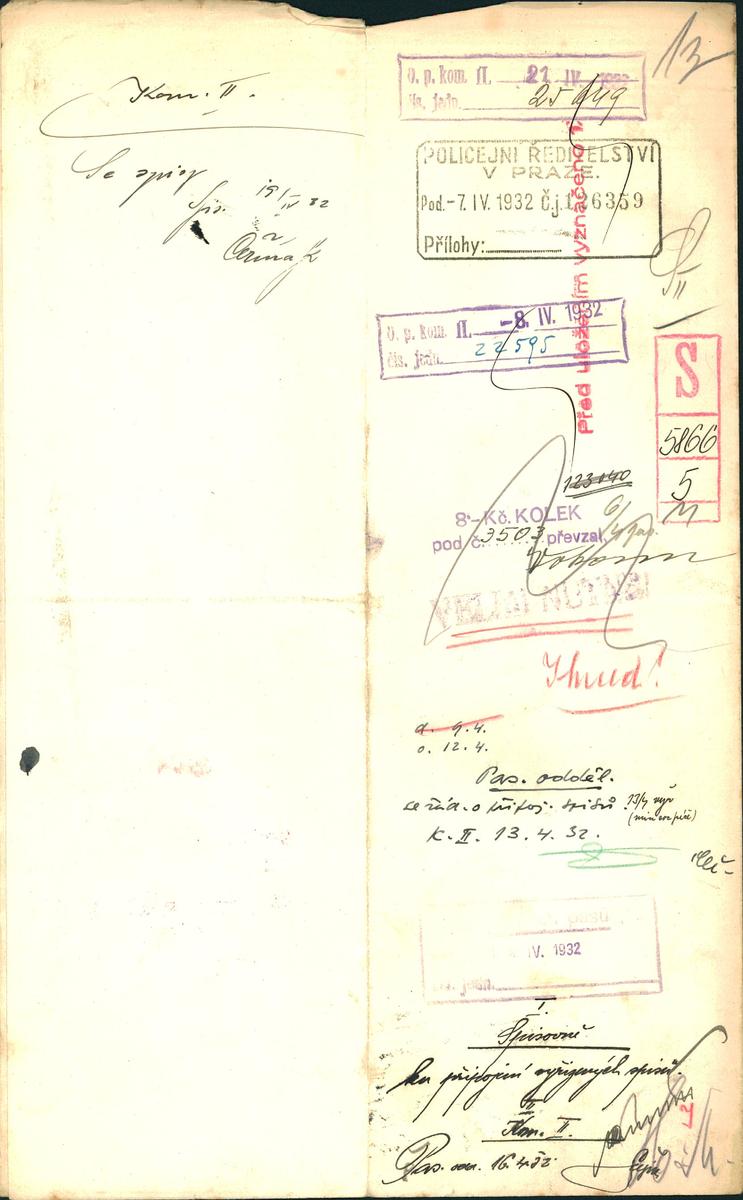 Kom. II.
Se spisy
19/IV 32
Čermák
13
O. p. kom. II. 21. IV. 1932
čís. jedn. 25649
POLICEJNÍ ŘEDITELSTVÍ
V PRAZE.
Pod. -7. IV. 1932 Č.j. 126359
Přílohy:
Před uložením vyznačeno
O. p. kom. II. -8. IV. 1932
čís. jedn. 22595
S
5866
5
123040
8·- Kč. KOLEK
pod č. 3503 převzal
VELMI NUTNÉ
Ihned!
d. 9.4.
o. 12.4.
Pas. odděl.
se žád. o připoj. spisů 13/4
K. II. 13.4.32.
pasů
IV. 1932
čís. jedn.
I.
Spisovně
ku připojení vyřízených spisů.
II
Kom. II.
Pas. odd. 16.4.32